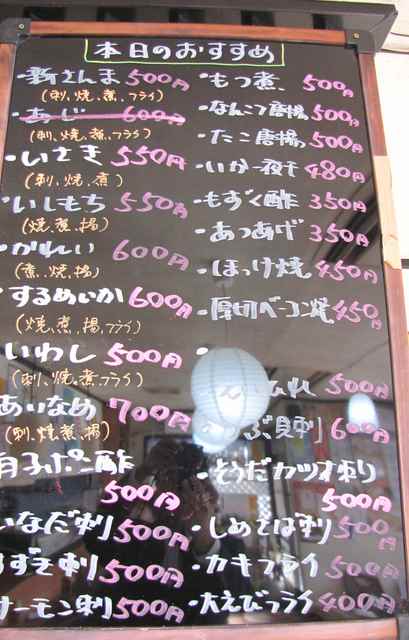 本日のおすすめ
・新さんま 500円
(刺、焼、煮、フライ)
・あじ 600円
(刺、焼、煮、フライ)
・いさき 550円
(刺、焼、煮)
・いしもち 550円
(焼、煮、揚)
かれい 600円
(煮、焼、揚)
するめいか 600円
(焼、煮、揚、フライ)
いわし 500円
(刺、焼、煮、フライ)
あいなめ 700円
(刺、焼、煮、揚)
子ポン酢
500円
いなだ刺 500円
すずき刺 500円
サーモン刺 500円
・もつ煮 500円
・なんこつ唐揚 500円
・たこ唐揚 500円
・いか一夜干 480円
・もずく酢 350円
・あつあげ 350円
・ほっけ焼 450円
・厚切ベーコン焼 450円
ひれ 500円
ぶ貝刺 600円
・そうだカツオ刺り
500円
・しめさば刺 500円
・カキフライ 500円
・大えびフライ 400円